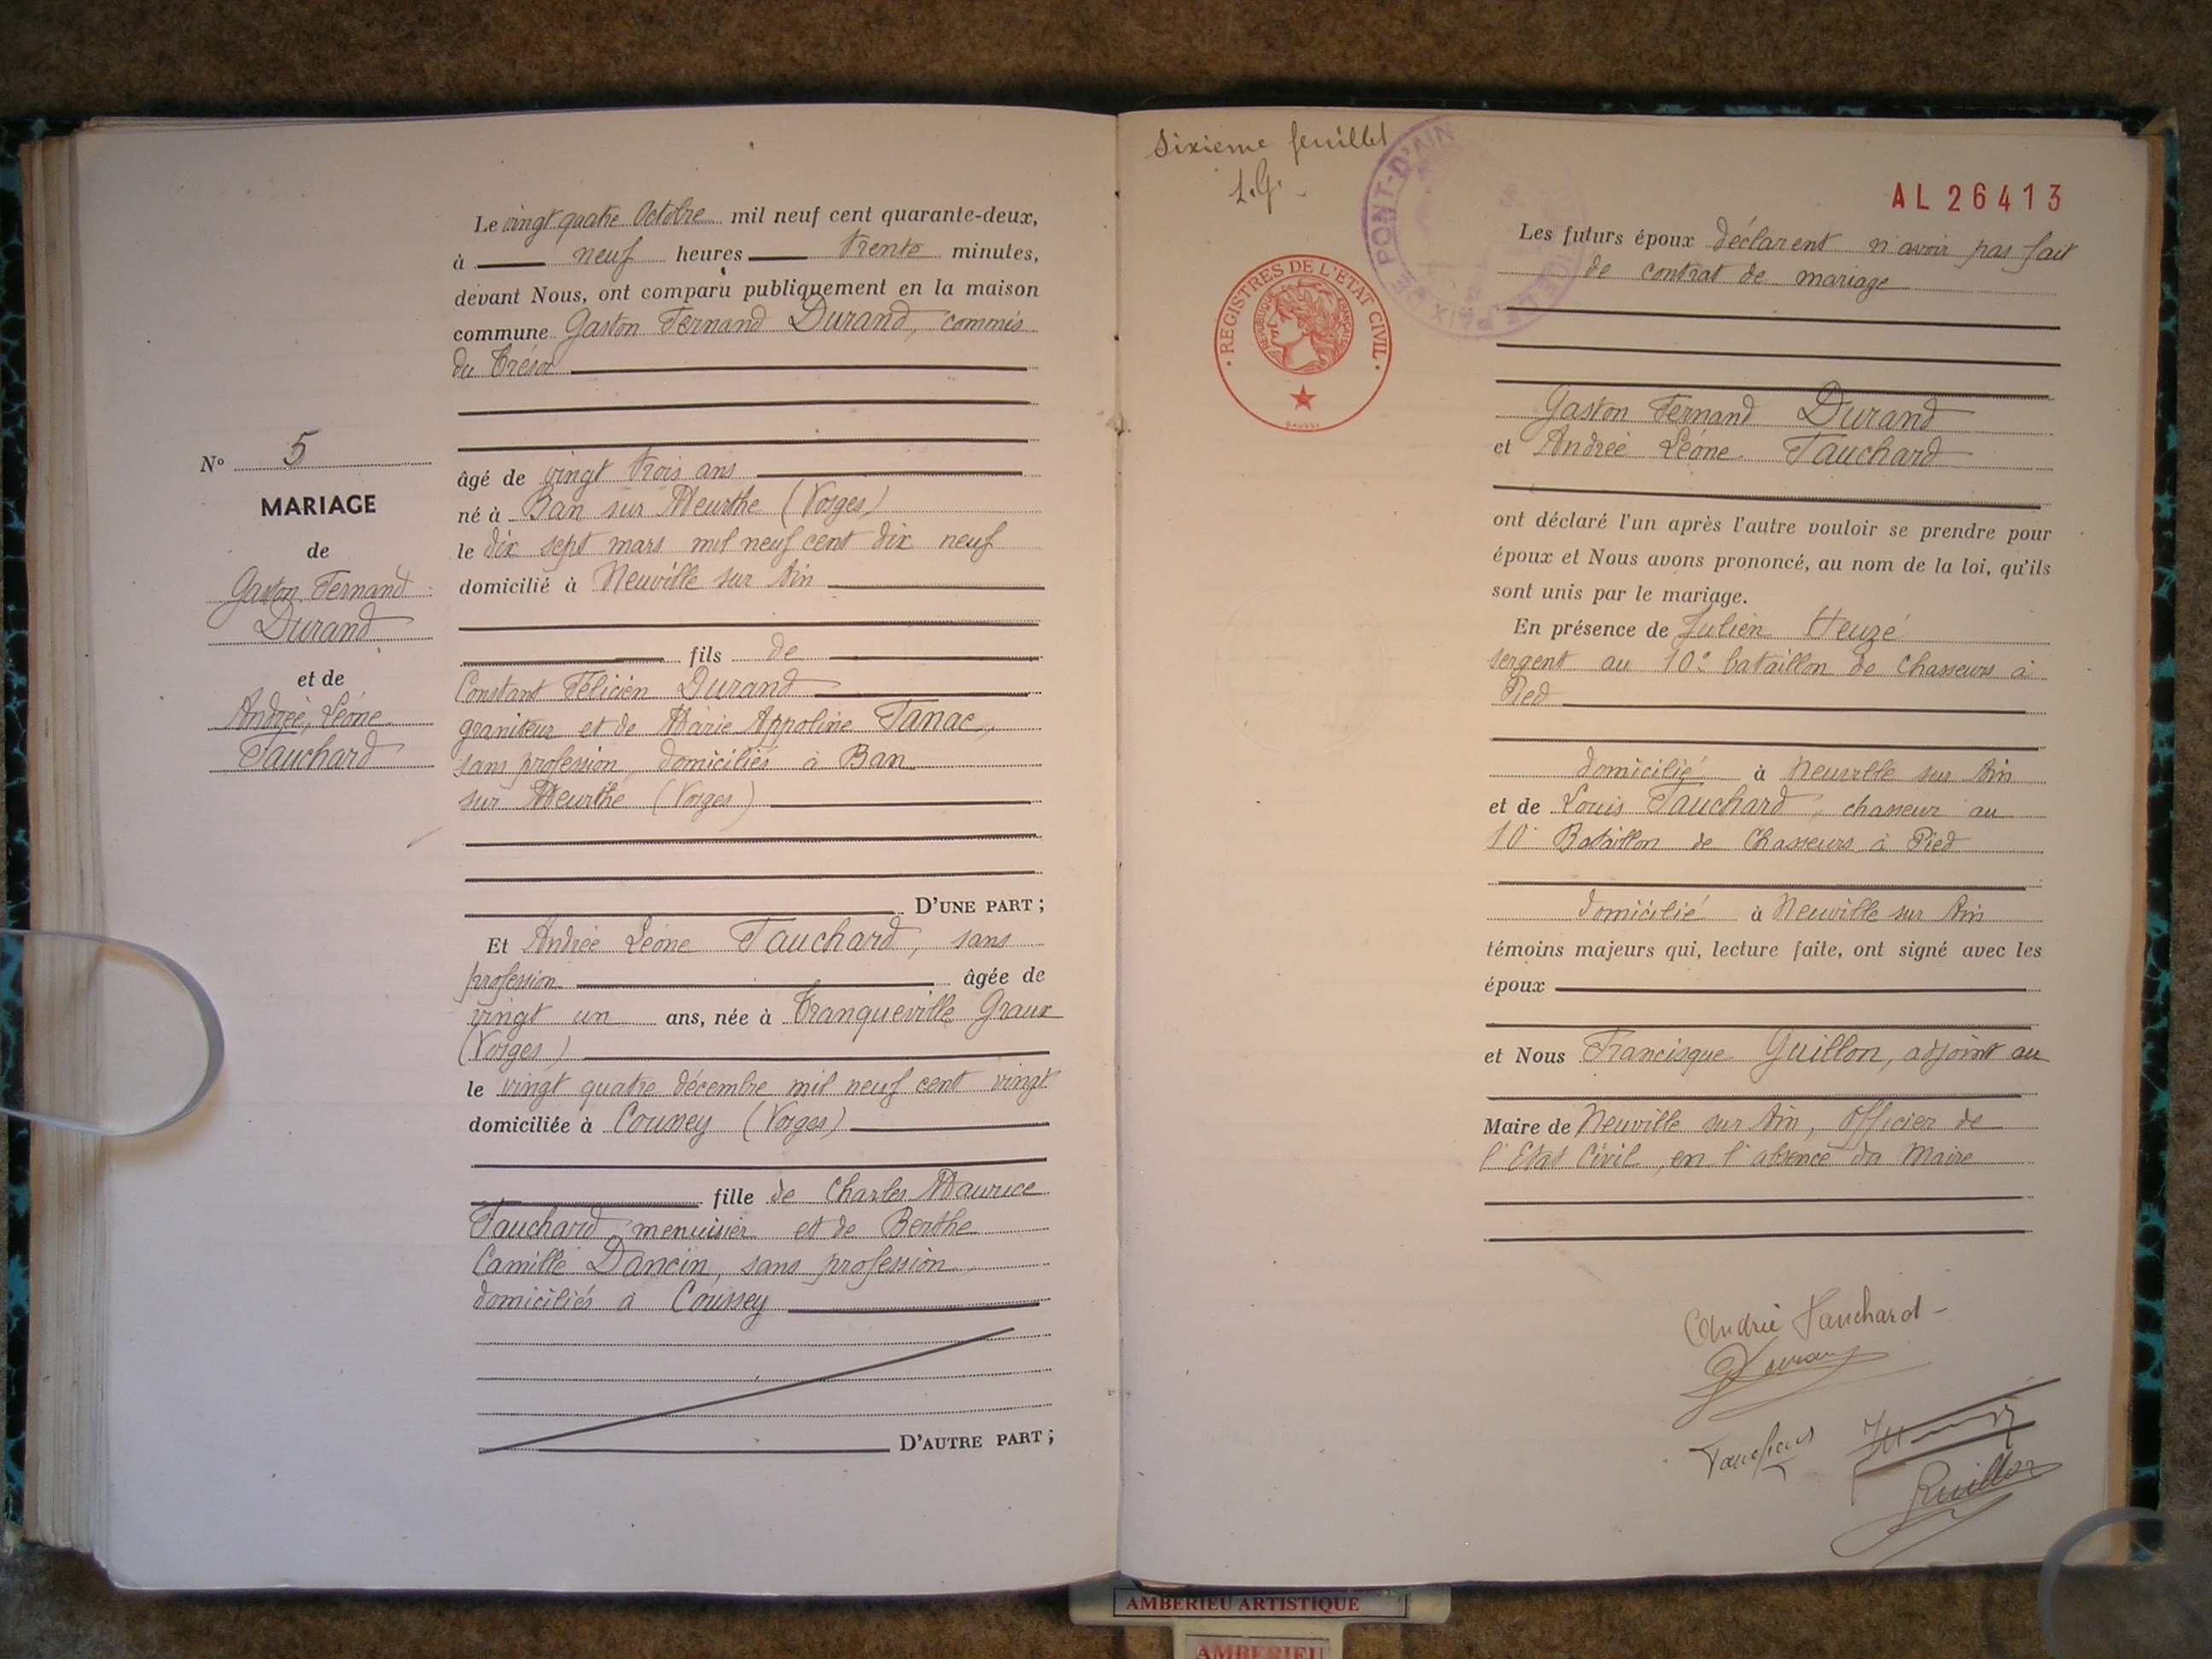 Le vingt quatre Octobre mil neuf cent quarante-deux,
à neuf heures trente minutes,
devant Nous, ont comparu publiquement en la maison
commune Gaston Fernand Durand, commis
du Trésor
N° 5
MARIAGE
de
Gaston Fernand
Durand
et de
Andrée, Léone
Fauchard
âgé de vingt trois ans
né à Ban sur Meurthe (Vosges)
le dix sept mars mil neuf cent dix neuf
domicilié à Neuville sur Ain
fils de
Constant Félicien Durand
graniteur et de Marie Appoline Fanac,
sans profession, domiciliés à Ban
sur Meurthe (Vosges)
D'UNE PART ;
Et Andrée Léone Fauchard, sans
profession âgée de
vingt un ans, née à Tranqueville Graux
(Vosges)
le vingt quatre décembre mil neuf cent vingt
domiciliée à Coussey (Vosges)
fille de Charles Maurice
Fauchard menuisier et de Berthe
Camille Dancin, sans profession,
domiciliés à Coussey
D'AUTRE PART ;
Sixieme feuillet
AL 26413
REGISTRES DE L'ETAT CIVIL
DE PAIX DE PONT-D'AIN
Les futurs époux déclarent n'avoir pas fait
de contrat de mariage
Gaston Fernand Durand
et Andrée Léone Fauchard
ont déclaré l'un après l'autre vouloir se prendre pour
époux et Nous avons prononcé, au nom de la loi, qu'ils
sont unis par le mariage.
En présence de Julien Heuzé
sergent au 10e bataillon de Chasseurs à
Pied
domicilié à Neuville sur Ain
et de Louis Fauchard, chasseur au
10e Bataillon de Chasseurs à Pied
domicilié à Neuville sur Ain
témoins majeurs qui, lecture faite, ont signé avec les
époux
et Nous Francisque Guillon, adjoint au
Maire de Neuville sur Ain, Officier de
l'Etat Civil, en l'absence du Maire
Andrée Fauchard
Durand
Fauchard
Guillon
AMBERIEU ARTISTIQUE
AMBERIEU